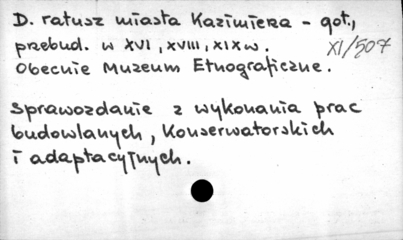 D. ratusz miasta Kazimierza - got.,
przebud. w XVI, XVIII, XIX w.
XI/507
Obecnie Muzeum Etnograficzne.
Sprawozdanie z wykonania prac
budowlanych, konserwatorskich
i adaptacyjnych.